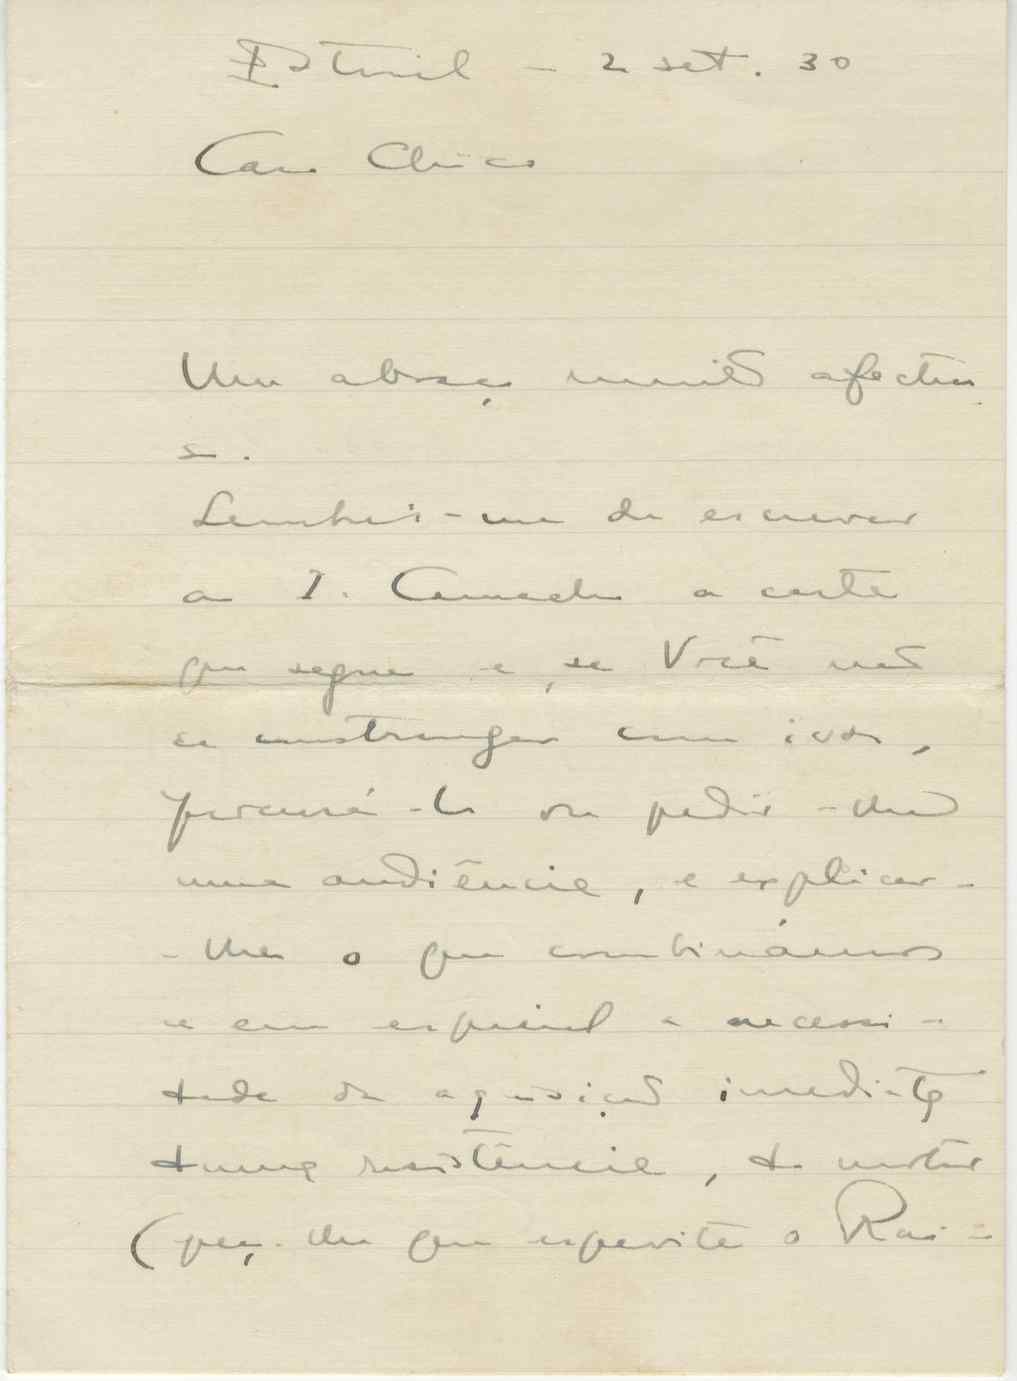 Estoril - 2 set. 30
Caro Chico
Um abraço muito afectuo
so.
Lembrei-me de escrever
ao I. Camacho a carta
que segue e, se Você não
se constranger com isso,
procurá-lo ou pedir-lhe
uma audiência, e explicar-
-lhe o que combinámos
e em especial a necessi-
dade da aquisição imediata
duma resistência, do motor
(peço-lhe que espevite o Rai-